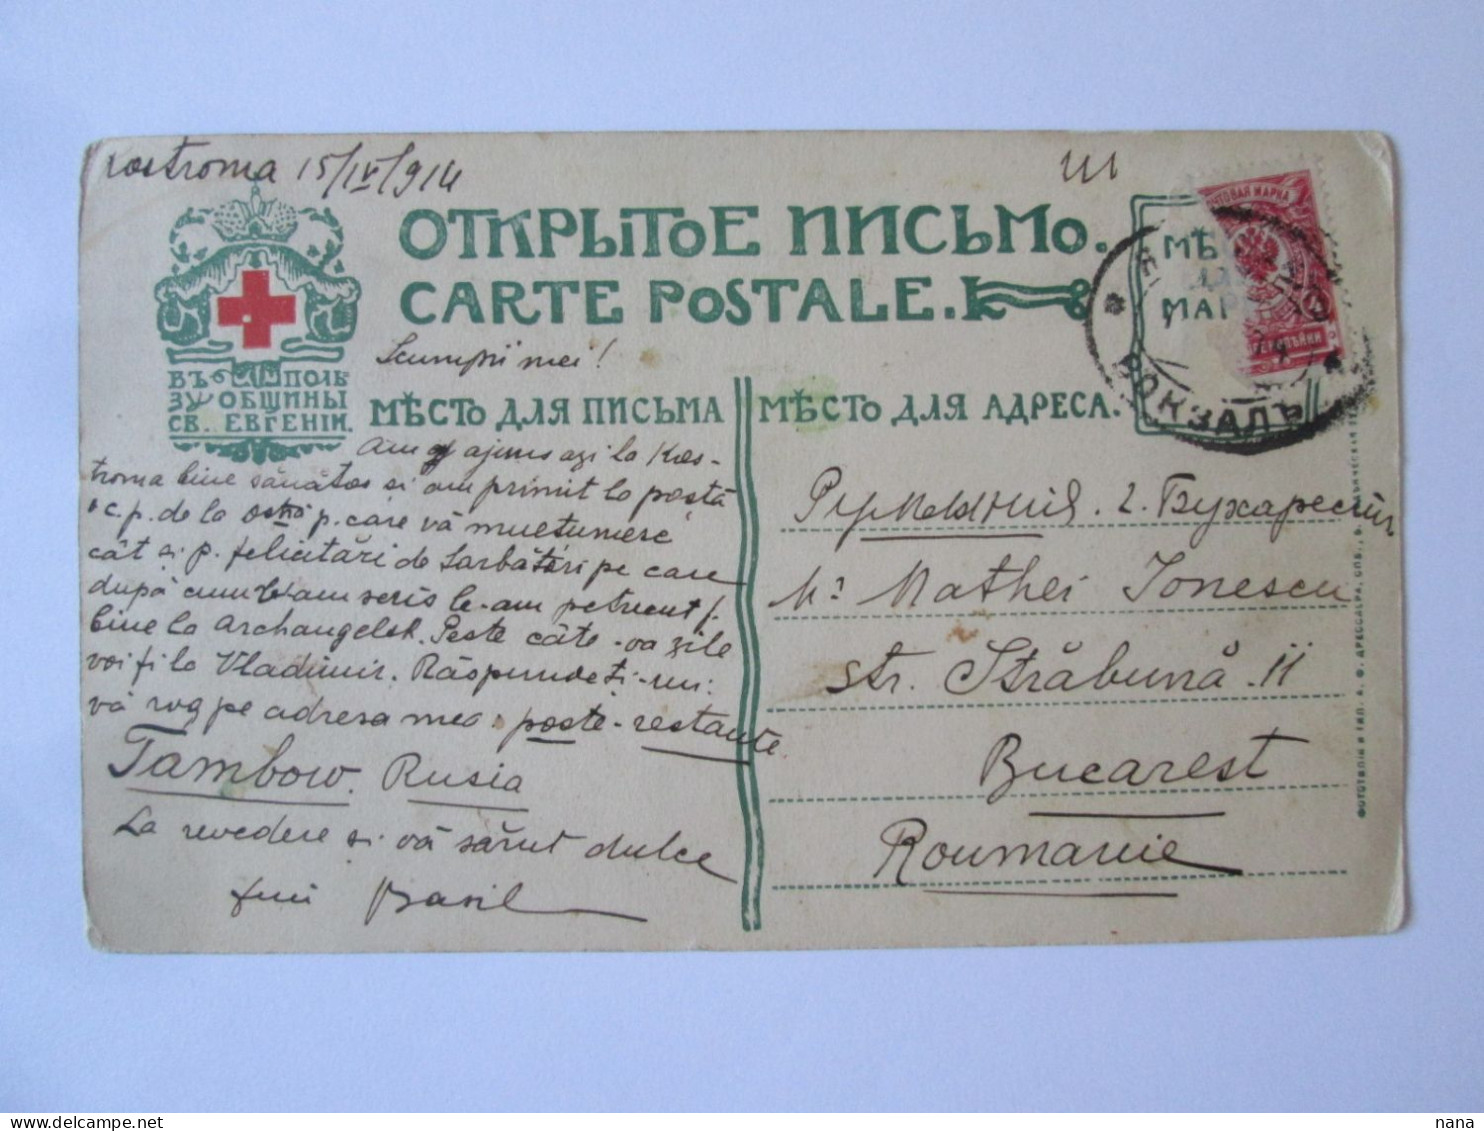 Kostroma 15/IV/914
ОТКРЫТОЕ ПИСЬМО.
CARTE POSTALE.
Scumpii mei!
ВЪ ПОЛЬ
ЗУ ОБЩИНЫ
СВ. ЕВГЕНІИ.
МѢСТО ДЛЯ ПИСЬМА
Am ajuns azi la Kos-
troma bine sănătos și am primit la poștă
c.p. de la p. care vă mulțumesc
cât și p. felicitări de Sarbători pe care
după cum v-am scris le-am petrecut f.
bine la Archangelsk. Peste câte-va zile
voi fi la Vladimir. Răspundeți-mi
vă rog pe adresa mea. poste-restante
Tambow. Rusia
La revedere și vă sărut dulce
Basil
МѢСТО ДЛЯ АДРЕСА.
МѢ
МАР
ПОЧТОВАЯ МАРКА
ВОКЗАЛЪ
Румынія. г. Бухарестъ
Mr Mathei Ionescu
str. Străbună 11
Bucarest
Roumanie
nana